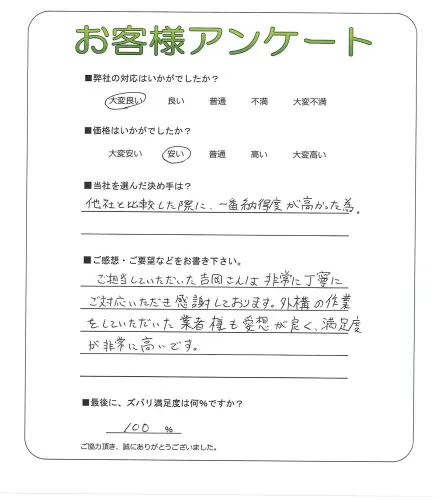 お客様アンケート
■弊社の対応はいかがでしたか？
大変良い 良い 普通 不満 大変不満
■価格はいかがでしたか？
大変安い 安い 普通 高い 大変高い
■当社を選んだ決め手は？
他社と比較した際に、一番納得度が高かった為。
■ご感想・ご要望などをお書き下さい。
ご担当していただいた吉岡さんは非常に丁寧に
ご対応いただき感謝しております。外構の作業
をしていただいた業者様も愛想が良く、満足度
が非常に高いです。
■最後に、ズバリ満足度は何%ですか？
100 %
ご協力頂き、誠にありがとうございました。